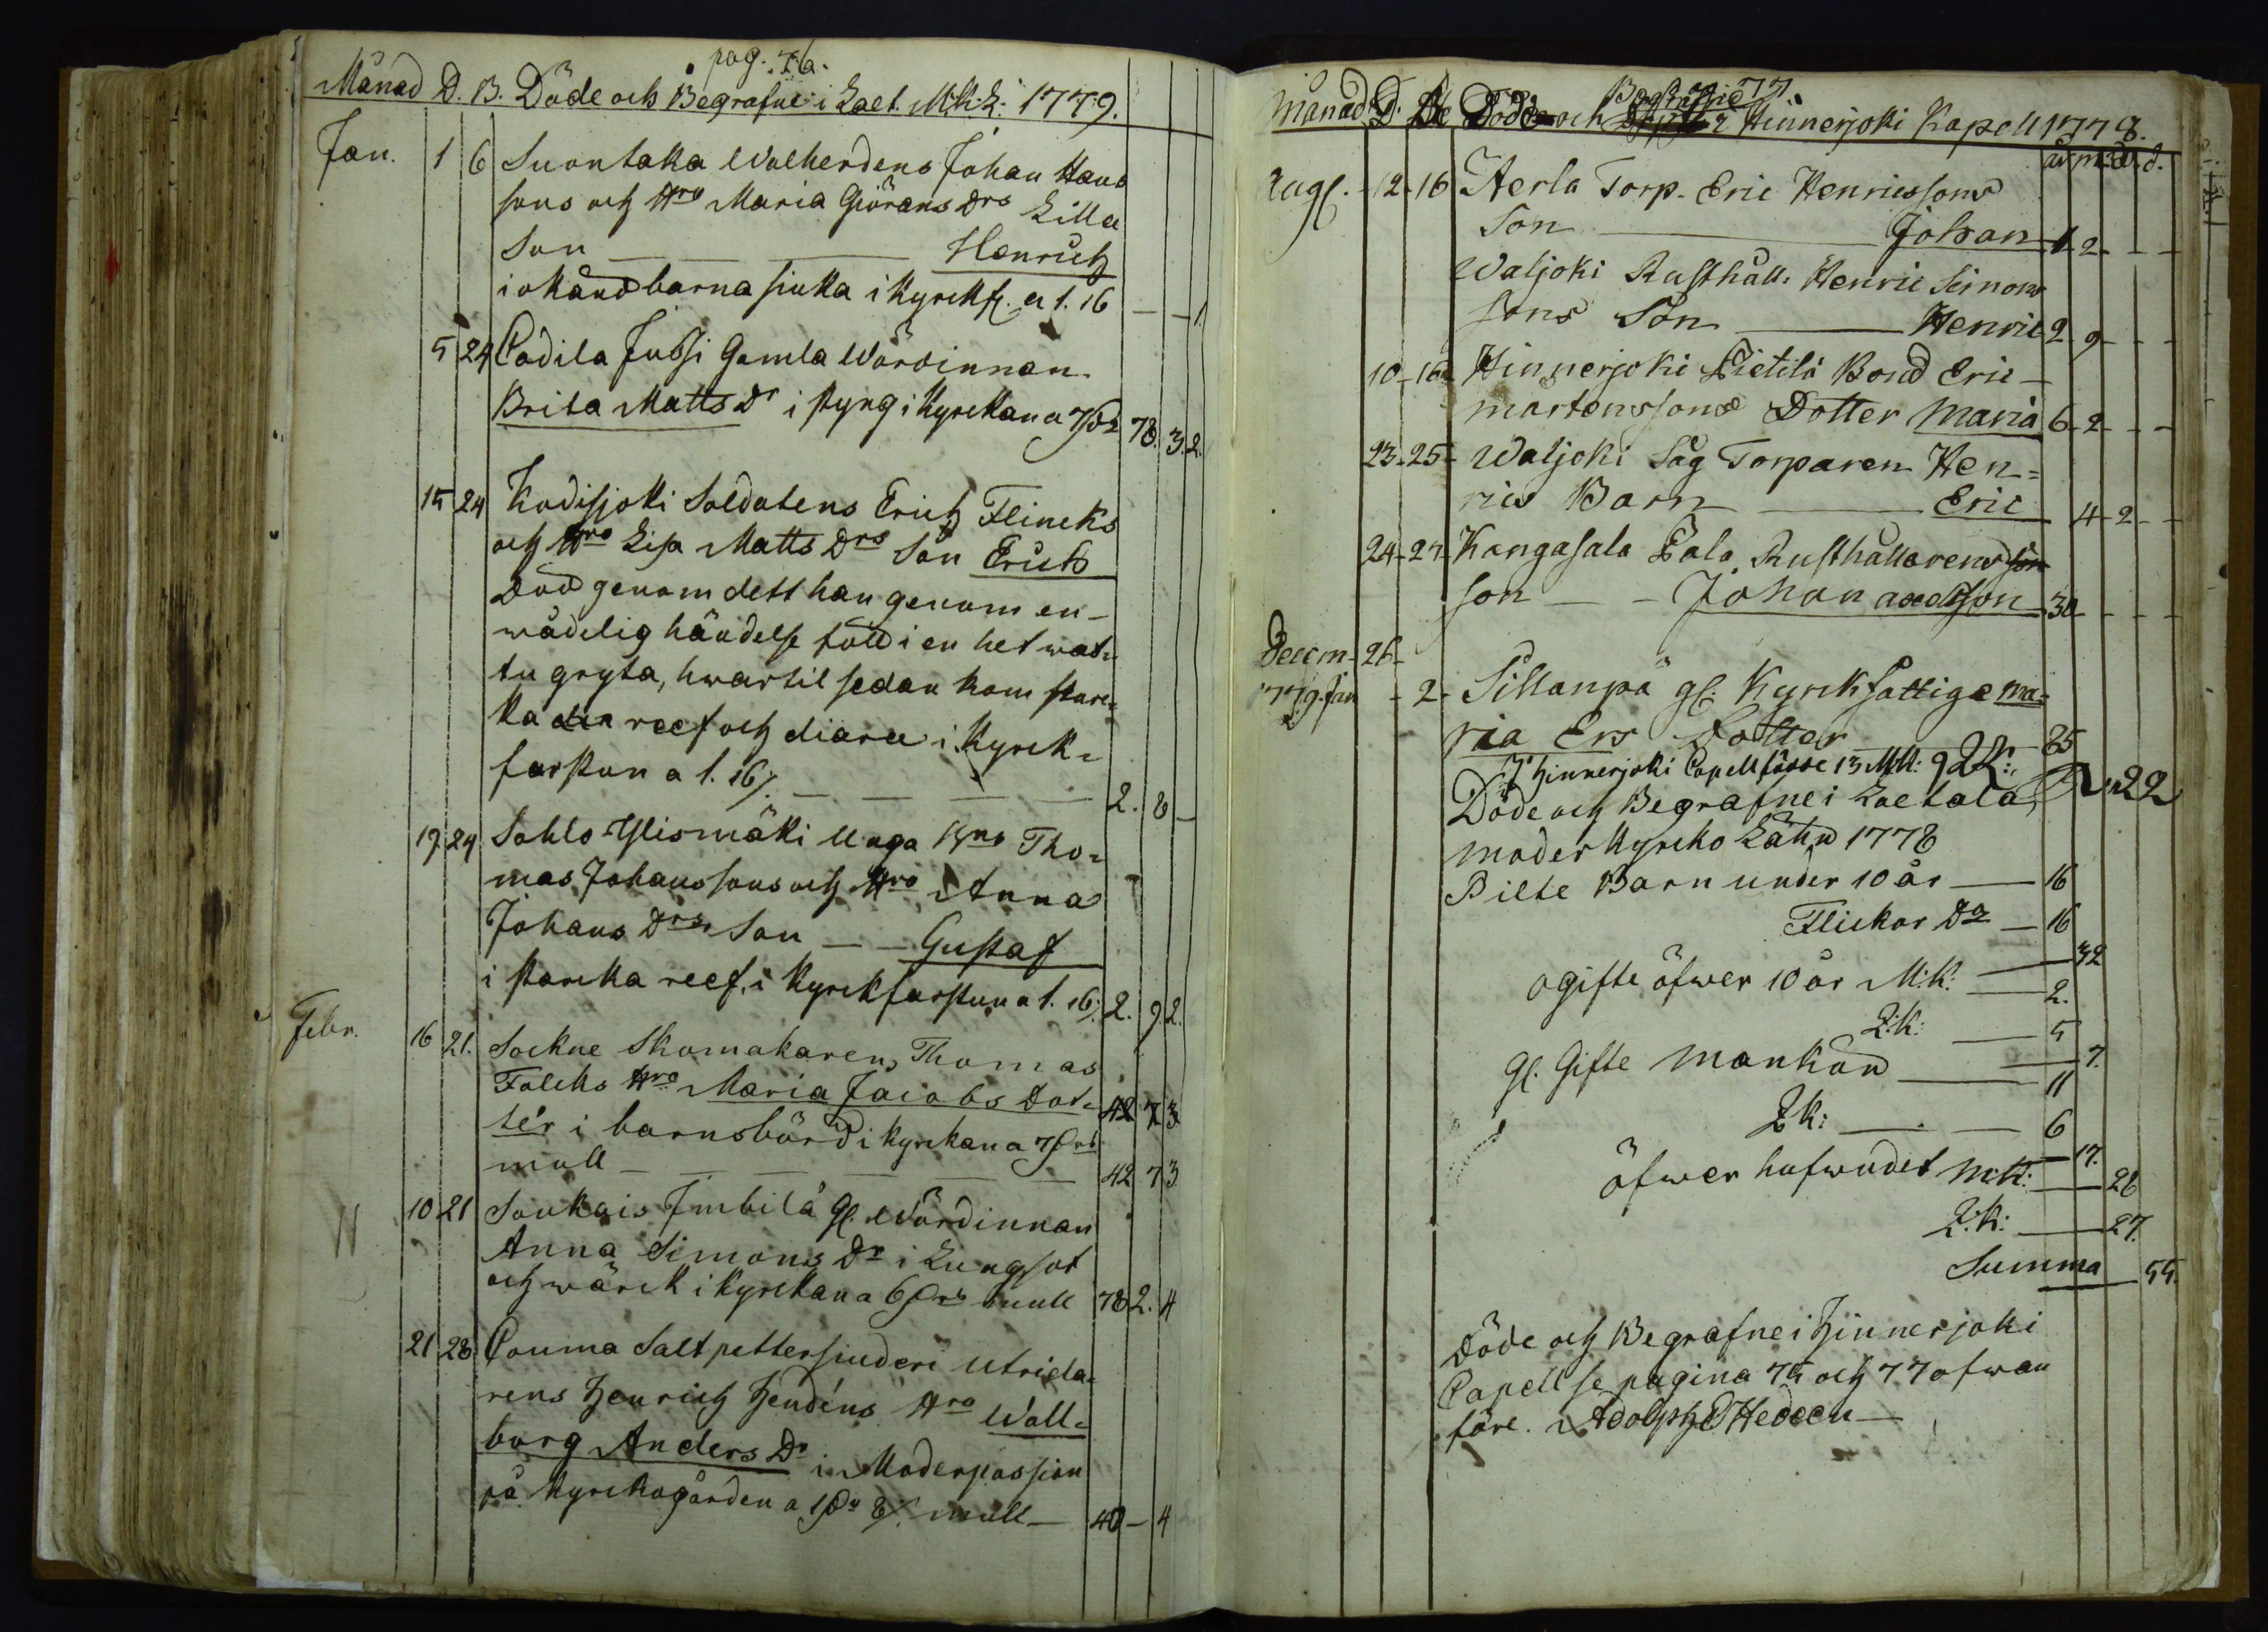 pag. 76.
Månad D. B. Döde och Begrafne i Laet. M:K:L: 1779.
Jan. 1 6 Suontaka Walherdens Johan Hans
sons och Hro Maria Giörans Drs Lilla
Son — — — Henrich
i okänd barnasiuka i Kyrckf. a 1. 16 — — 1.
5 24 Codila Jussi Gamla Wärdinnan
Brita Matts Dr i styng i Kyrckan a 78. 3. 2.
15 24 Kodisjoki Soldatens Erich Flincks
och Hro Lisa Matts Drs Son Erich
död genom dett han genom en
wådelig händelse föll i en het wat-
tu gryta, hwartil sedan kom starc-
ka reef och diaree i Kyrck-
farstun a 1. 16. — — — — 2. 8 —
19 24 Sahlo Ylismäki Unga Bns Tho-
mas Johanssons och Hro Anna
Johans Drs Son — — Gustaf
i starcka reef, i Kyrckfarstun a 1. 16. 2. 9 2.
Febr. 16 21. Sockne Skomakarens Thomas
Falcks Hro Maria Jacobs Dot- 42 7 3
ter i barnsbörd i Kyrckan a 7
mull — — — — 42 7 3
10 21 Soukais Imbilä Gl. Wärdinnan
Anna Simons Dr i Lungsot
och wärck i Kyrckan a 6 mull 78 2. 4
21 28 Couma Saltpettersiuderi Utrida-
rens Henrich Hendéns Hro Wall-
borg Anders Dr i Moderpassion
på Kyrckogården a 1 8 mull — 40 — 4
77.
Begrafne
Månad D. Be Döde och Hinnerjoki Kapell 1778.
år m. d.
Aug. 12-16 Aerla Torp. Eric Henricssons
Son — Johan 1-2- - -
Waljoki Rusthåll. Henric Simons
sons Son — Henric 2 9- - -
10-16 Hinnerjoki Pietilä Bond Eric
mårtenssons Dotter Maria 6-2- - -
23-25- Waljoki Såg Torparen Hen=
rics Barn — Eric 4-2- -
24-27- Kangasala Pala Rusthållarens son
son — — Johan axellson 30- - - -
Decem- 26-
1779. Jan - 2- Sillanpä gl. Kyrckfattige Ma-
ria Ers Dotter — 85
I Hinnerjoki Capell såsse 13 MK: 9 Z.K: 22
Döde och Begrafne i Laetala
moder Kyrcko Lähn 1778
Pilte Barn under 10 år — 16
Flickor Do — 16
32
ogifte öfwer 10 år M:K: — 2.
Z:K: — 5
7.
Gl. Gifte Mankön — 11
ZK: — — 6
17.
öfwer hufwudet MK: — 28
Z:K: — 27.
Summa 55.
Döde och Begrafne i Hinnerjoki
Capell se pagina 75 och 77 ofwan
före. Adolph Hedeen